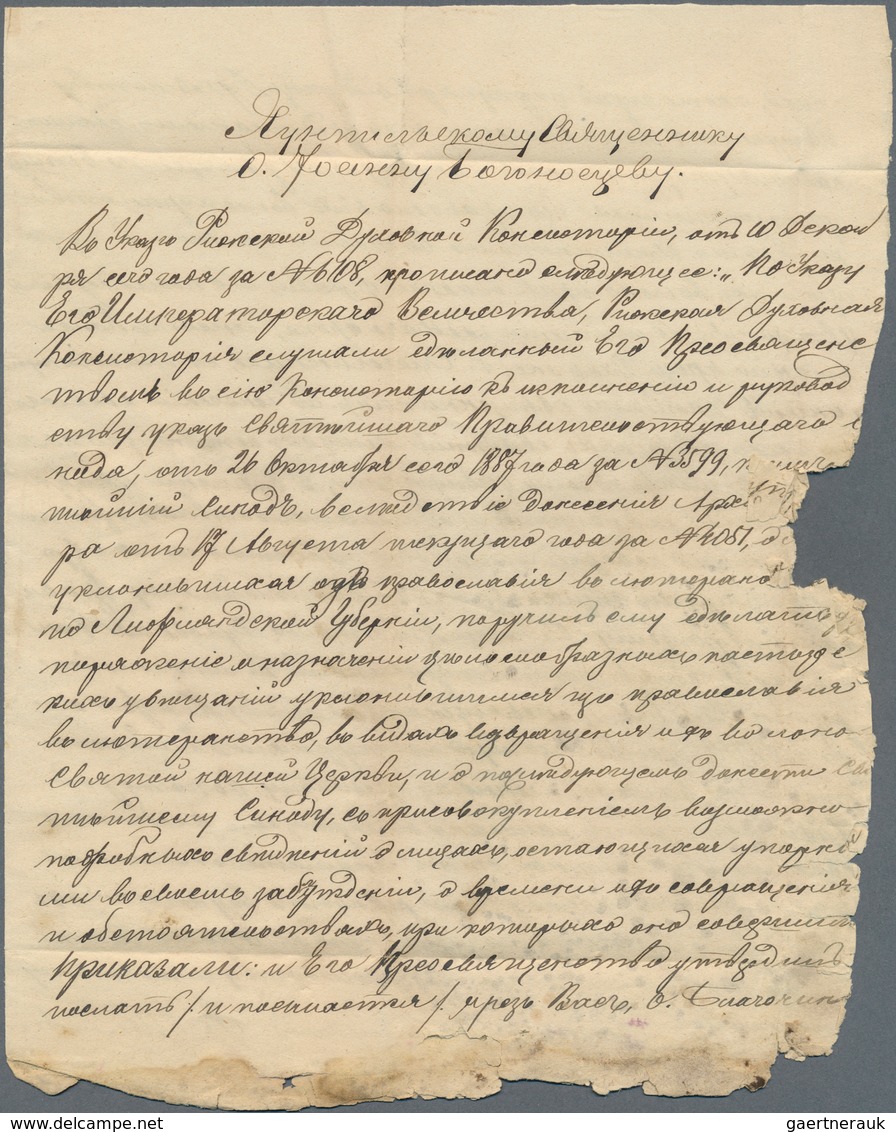 Священнику
О. Іоанну Богоносцеву.
Въ Указѣ Рижской Духовной Консисторіи, отъ 10 Декаб
ря сего года за № 6108, прописано слѣдующее: „По Указу
Его Императорскаго Величества, Рижская Духовная
Консисторія слушали сдѣланный Его Преосвященс
твомъ въ сію Консисторію къ исполненію и руковод
ству указъ Святѣйшаго Правительствующаго
нода, отъ 26 Октября сего 1887 года за № 3599,
тѣйшій Синодъ, вслѣдствіе донесенія
ра отъ 17 Августа текущаго года за № 4051,
уклонившихся отъ православія въ лютеранс
по Лифляндской Губерніи, поручилъ ему сдѣлать
поряженіе о назначеніи цѣлесообразныхъ пастырс
кихъ увѣщаній уклонившимся изъ православія
въ лютеранство, въ видахъ возвращенія ихъ въ лоно
Святой нашей Церкви, и о послѣдующемъ донести Свя
тѣйшему Синоду, съ присовокупленіемъ возможно
подробныхъ свѣдѣній о лицахъ, остающихся упорны
ми въ своемъ заблужденіи, о времени ихъ совращенія
и обстоятельствахъ, при которыхъ оно совершилось
Приказали: и Его Преосвященство утвердилъ
послать /: и посылается :/ чрезъ Васъ, о. Благочин
gaertnerauk